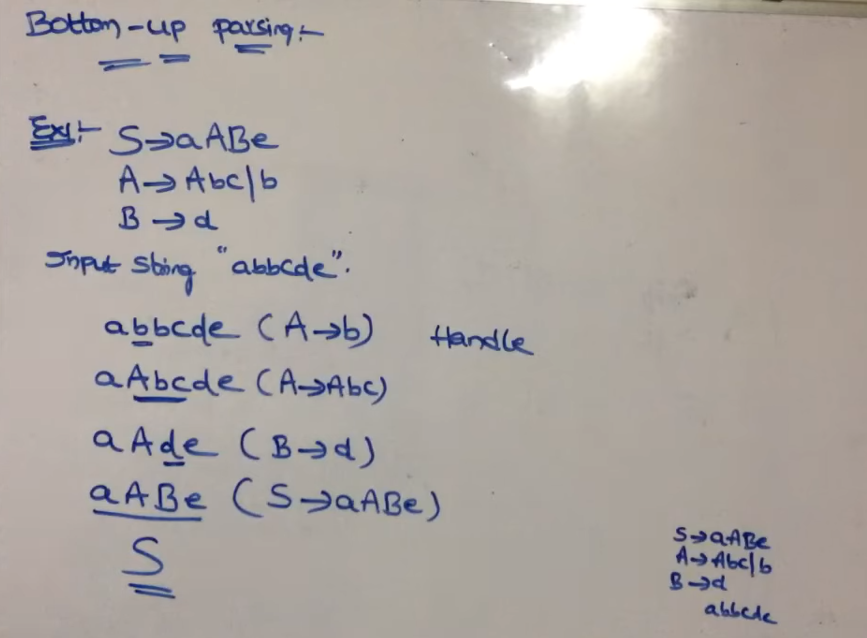 Bottom-up parsing:-
Ex:- S→aABe
A→Abc|b
B→d
Input string "abbcde".
abbcde (A→b) Handle
aAbcde (A→Abc)
aAde (B→d)
aABe (S→aABe)
S
S→aABe
A→Abc|b
B→d
abbcde